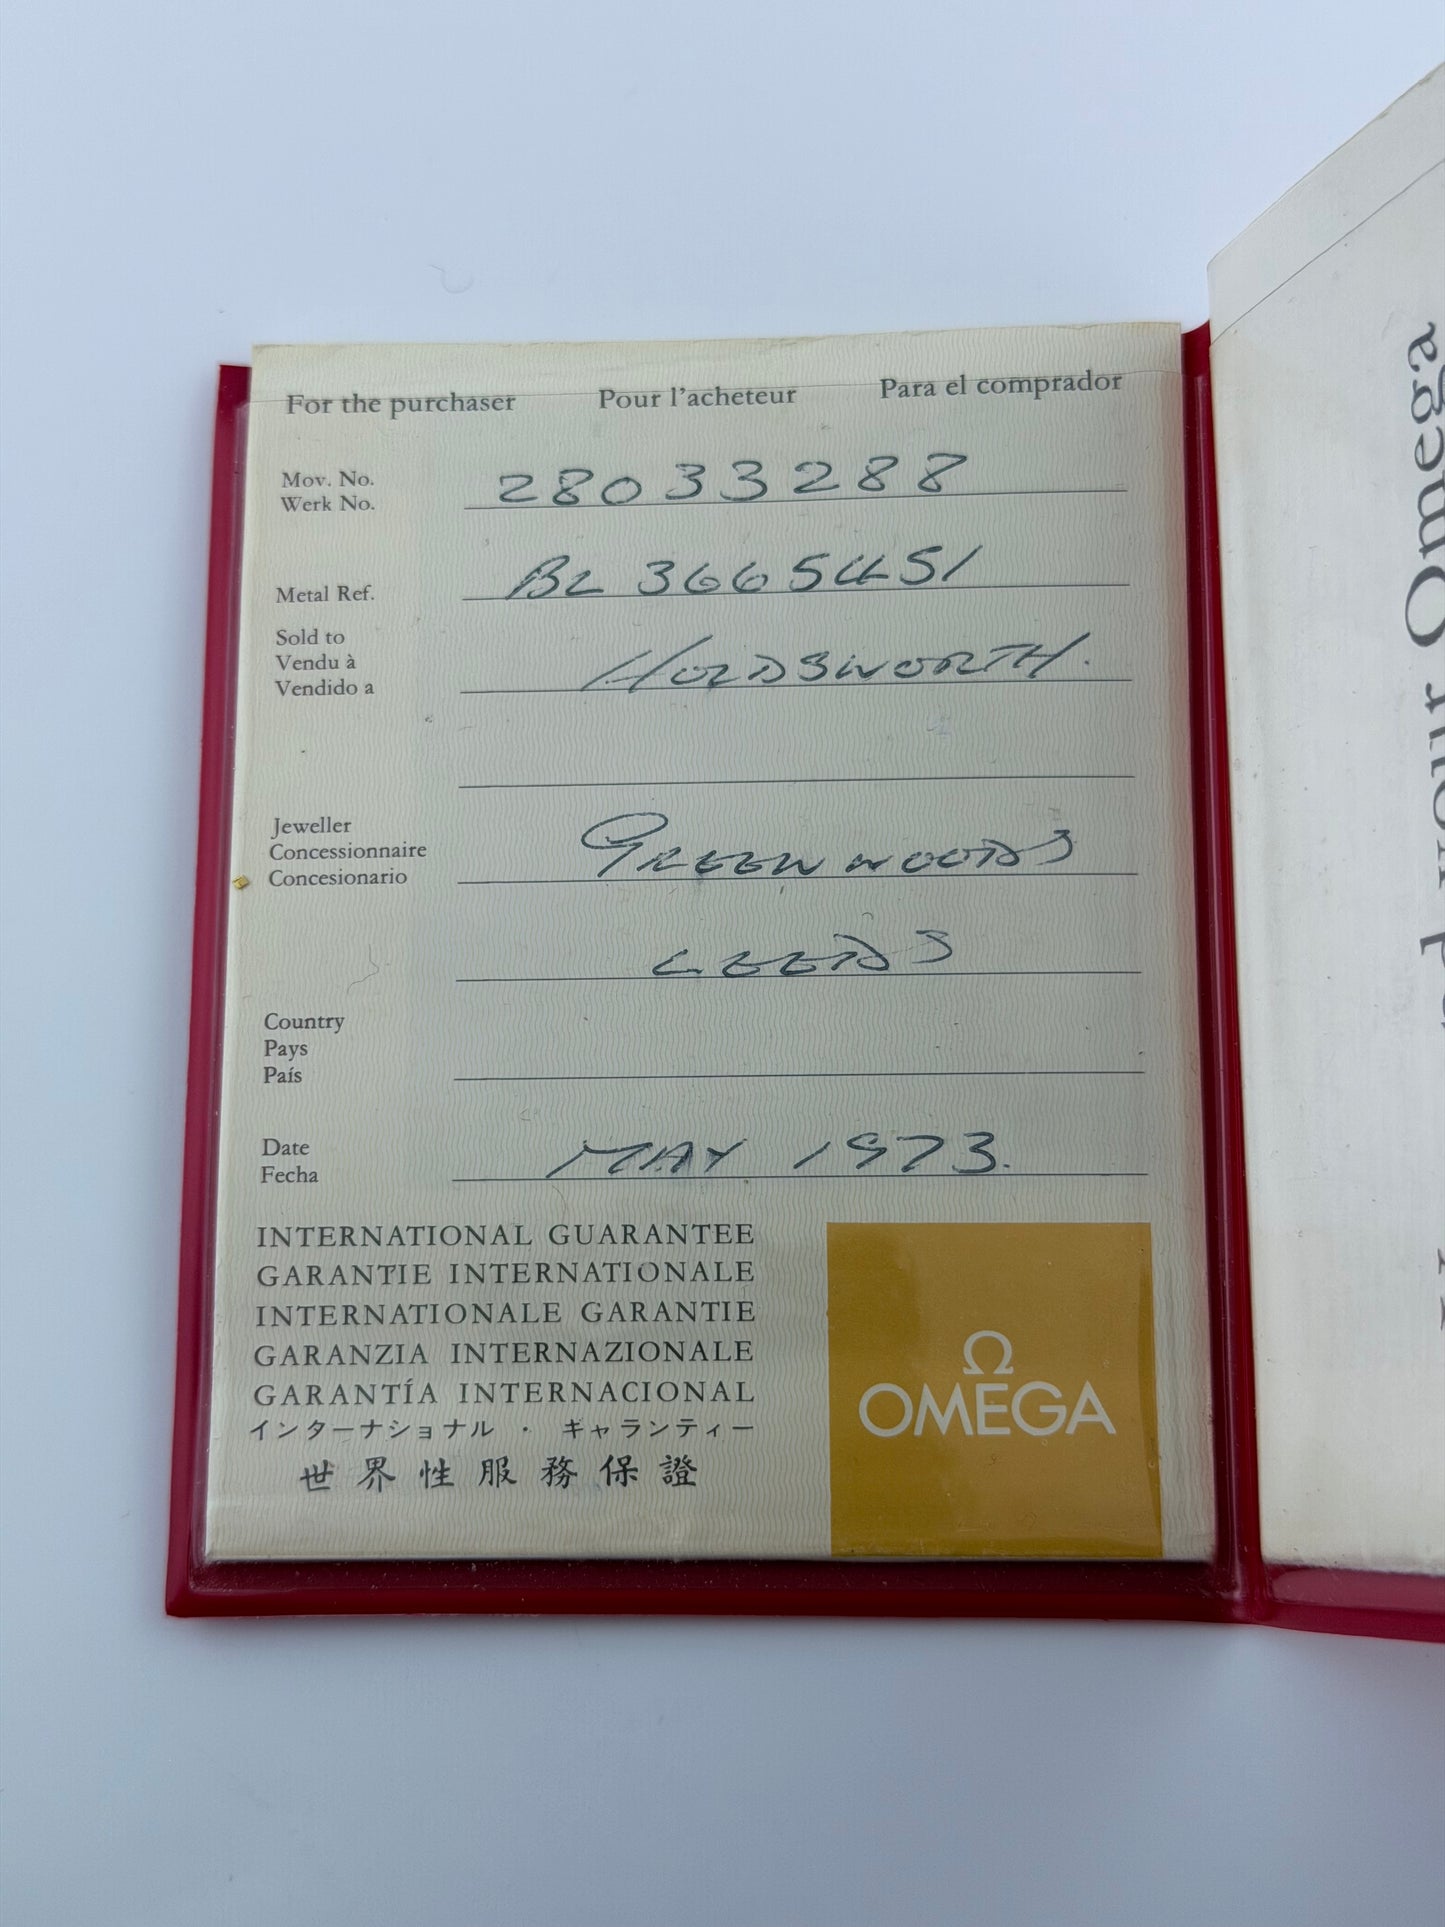 For the purchaser Pour l'acheteur Para el comprador
Mov. No. 28033288
Werk No.
Metal Ref. BL 3665451
Sold to HOLDSWORTH.
Vendu à
Vendido a
Jeweller GREENWOODS
Concessionnaire
Concesionario
LEEDS
Country
Pays
País
Date MAY 1973.
Fecha
INTERNATIONAL GUARANTEE
GARANTIE INTERNATIONALE
INTERNATIONALE GARANTIE
GARANZIA INTERNAZIONALE
GARANTÍA INTERNACIONAL
インターナショナル · ギャランティー
世界性服務保證
Ω
OMEGA
Omega